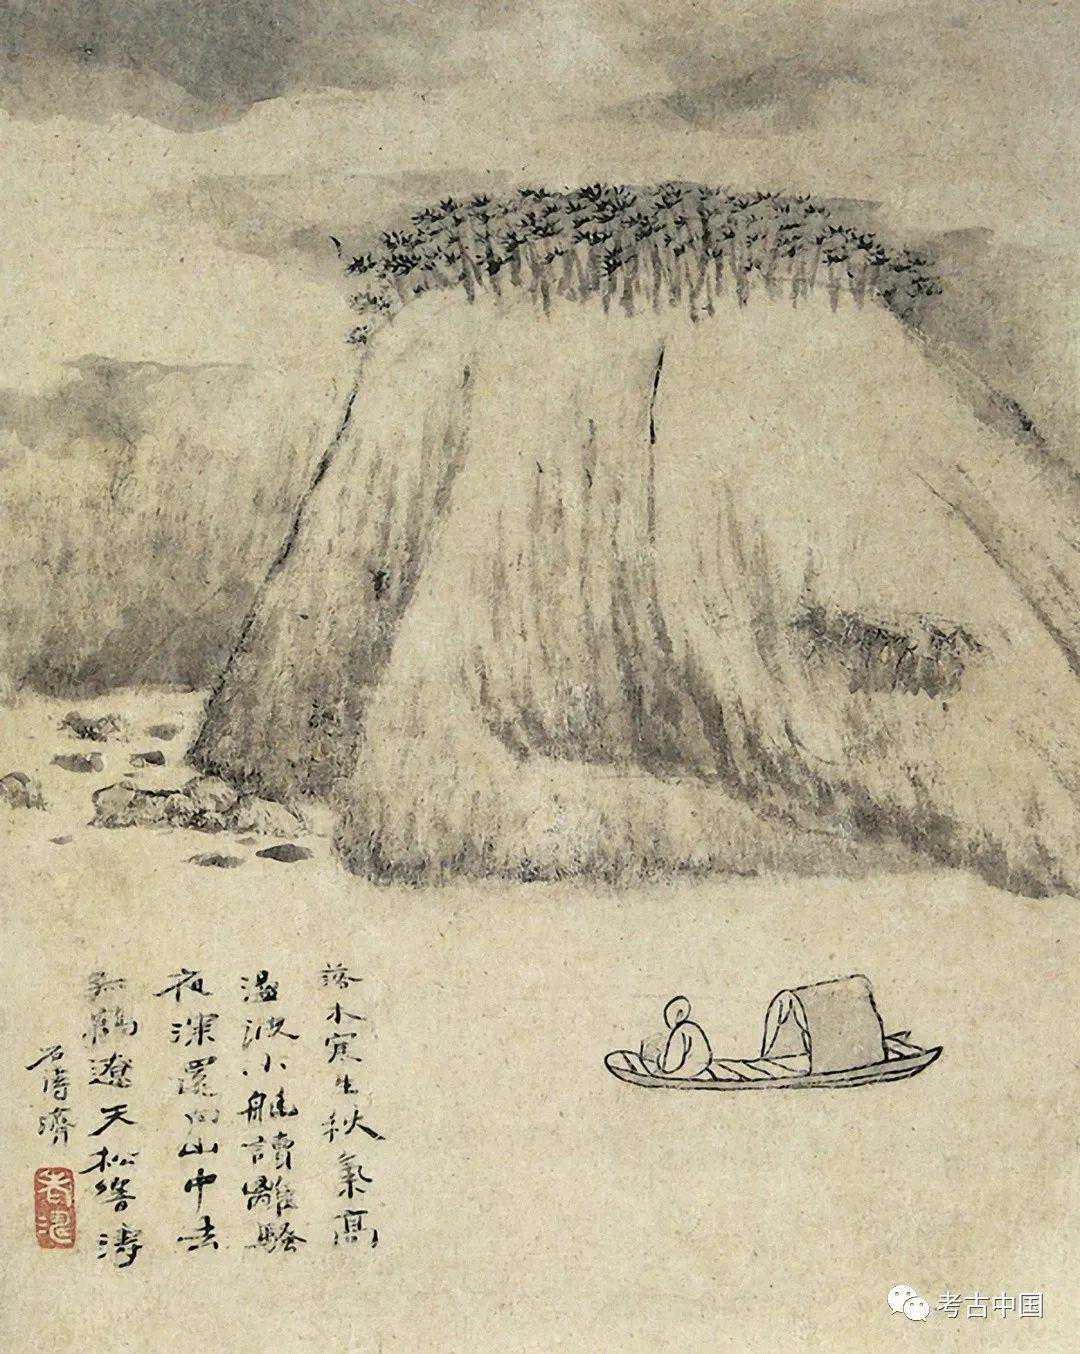 落木寒生秋氣高
盪波小艇讀離騷
夜深還向山中去
孤鶴遼天松響濤
石濤濟
老濤
考古中国